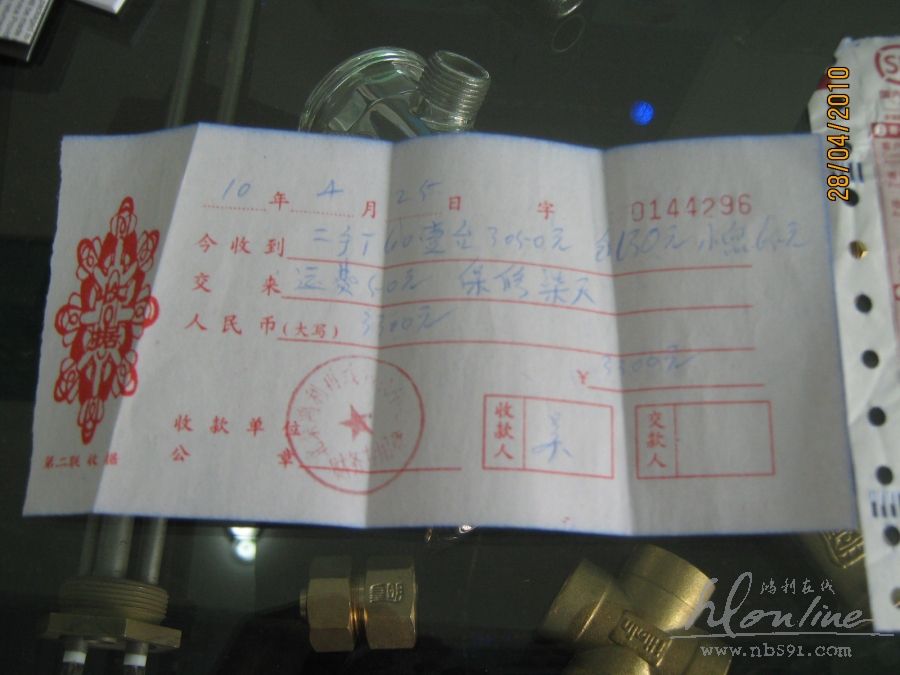 28/04/2010
10年4月25日 字 0144296
今收到 二手T60壹台3050元 130元 60元
交来 运费60元 保修柒天
人民币(大写) 3300元
¥3300元
收款单位
公章
财务专用章
收款人 吴
交款人
收据
第二联收据
鸿利在线
hlonline
www.nb591.com